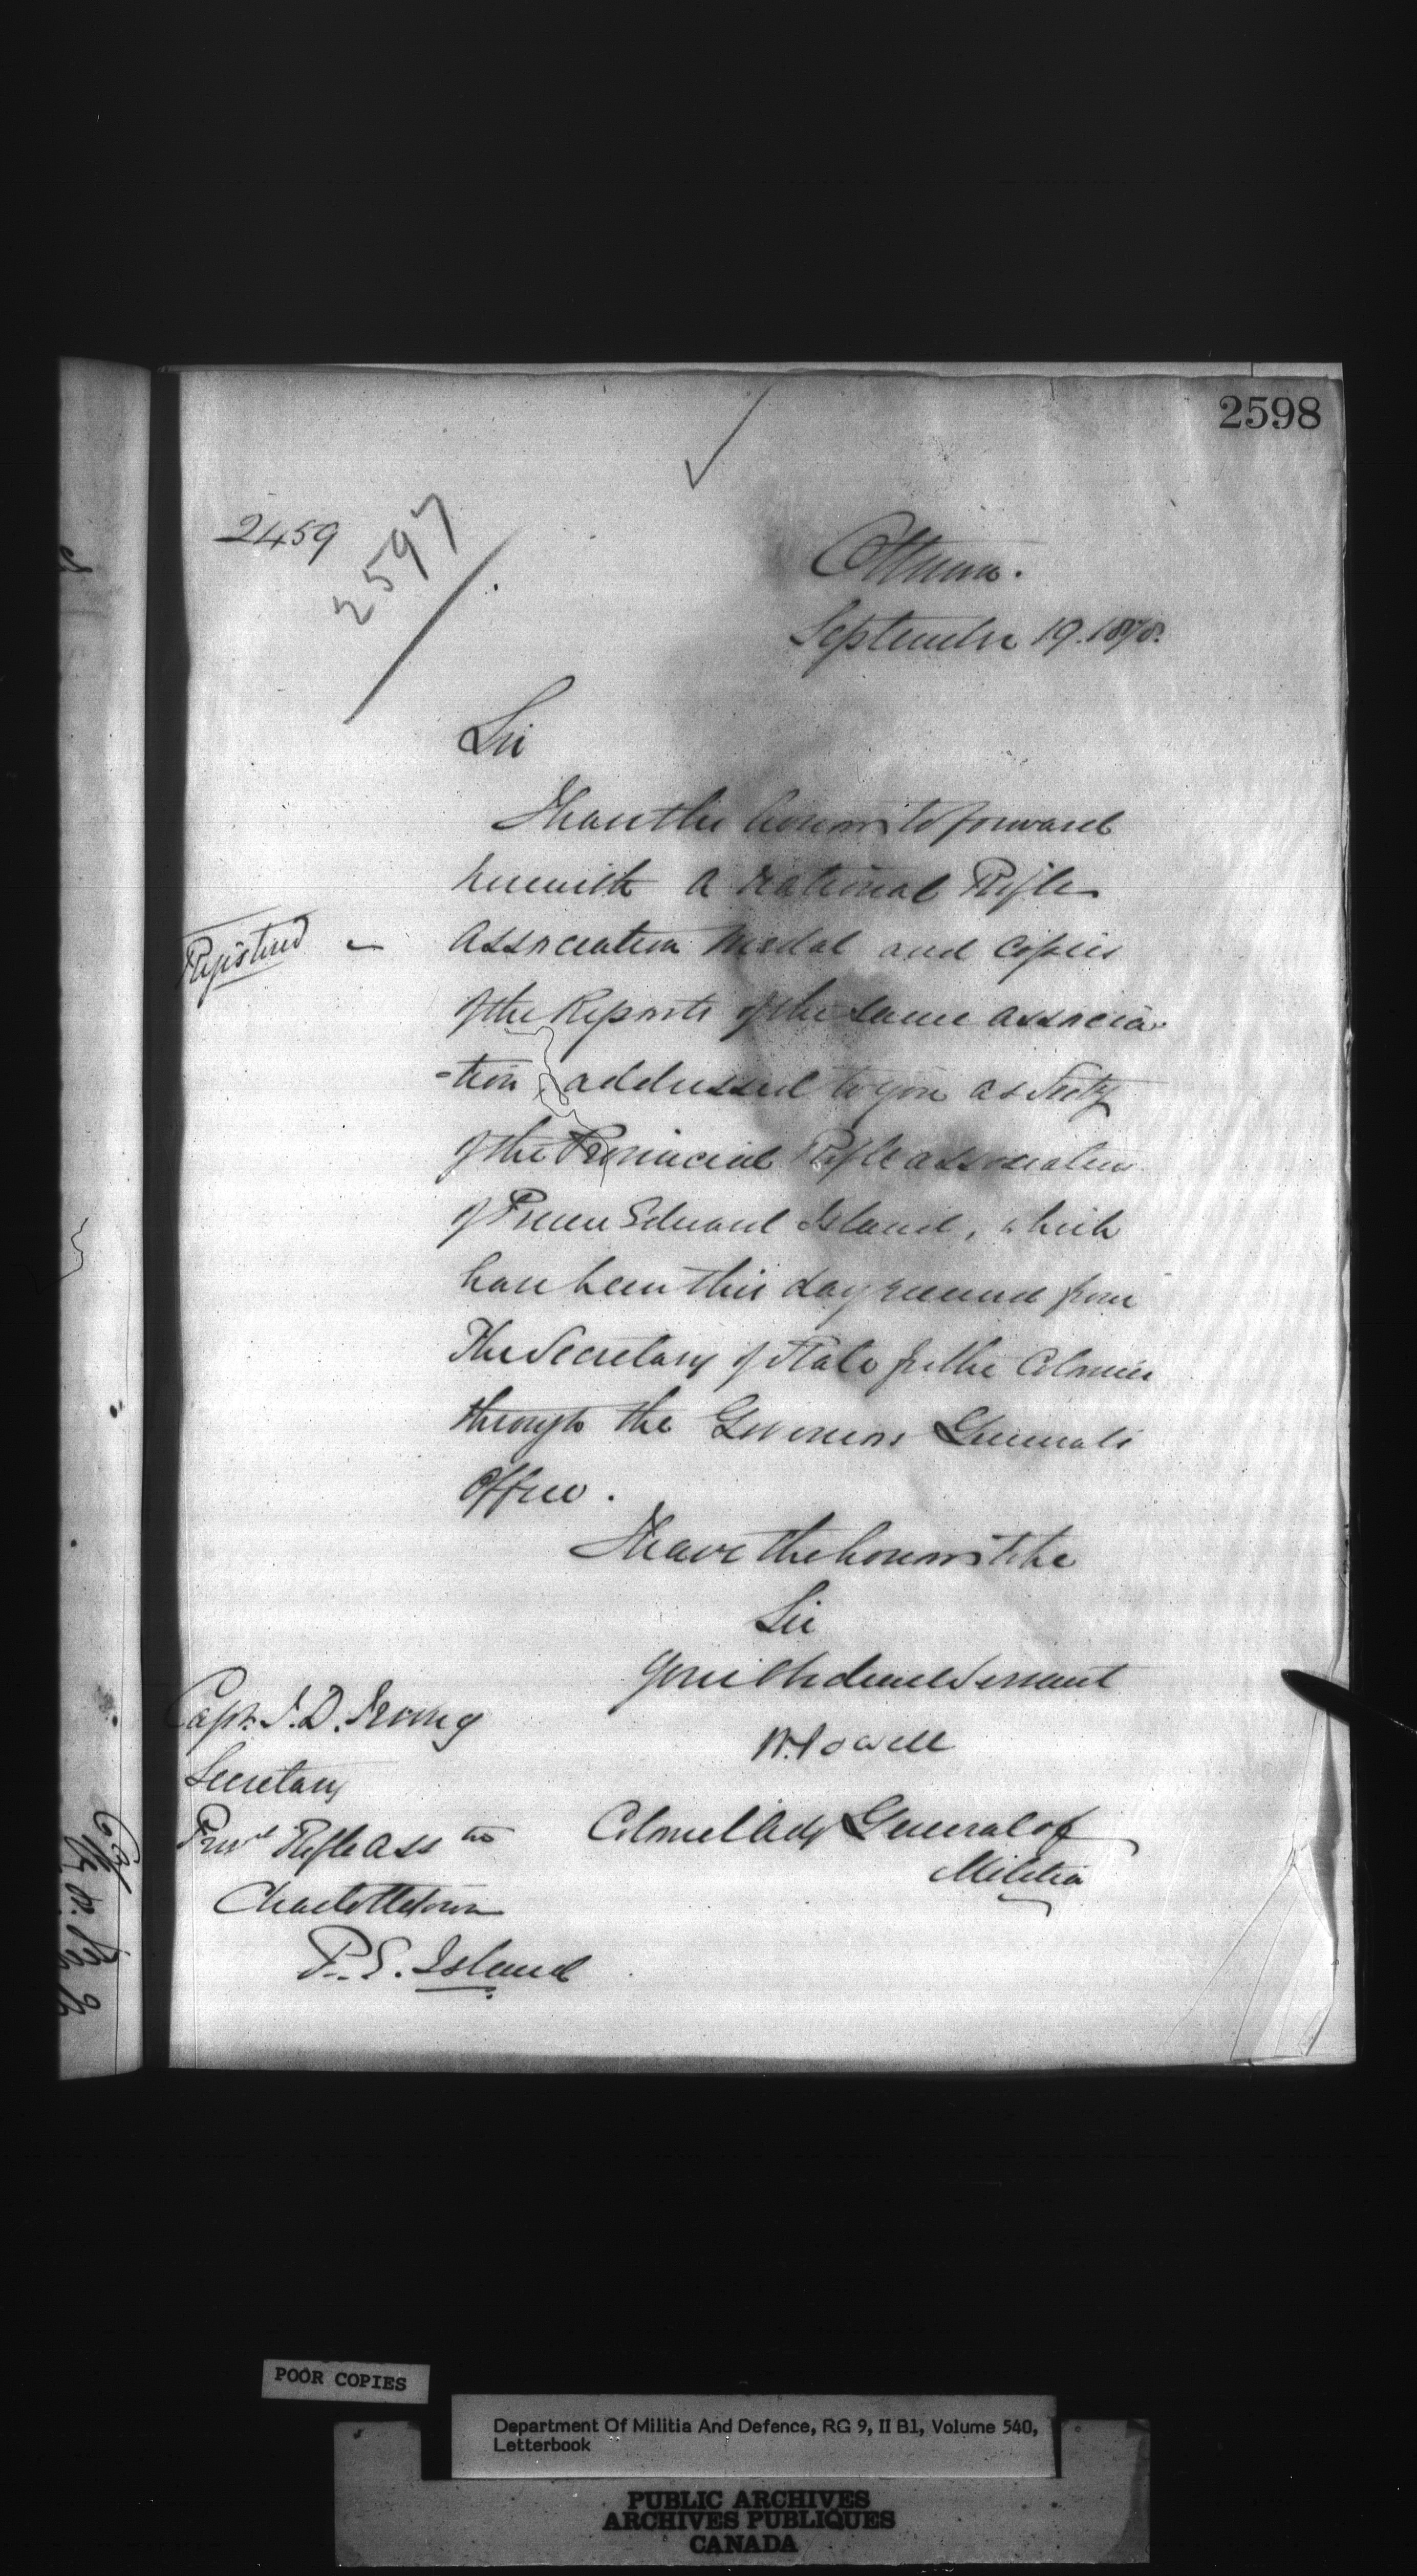 2598
2459
2597
Ottawa.
September 19. 1878.
Sir
I have the honor to forward
herewith a National Rifle
Registered
Association Medal and copies
of the Reports of the same associa-
-tion, addressed to you as Secty
of the Provincial Rifle association
of Prince Edward Island, which
have been this day received from
The Secretary of State for the Colonies
through the Governor Generals
Office.
I have the honor to be
Sir
Your Obedient Servant
W. Powell
Colonel Adjt General of
Militia
Capt. J. D. Irving
Secretary
Provl Rifle Asstn
Charlottetown
P. E. Island
POOR COPIES
Department Of Militia And Defence, RG 9, II B1, Volume 540,
Letterbook
PUBLIC ARCHIVES
ARCHIVES PUBLIQUES
CANADA